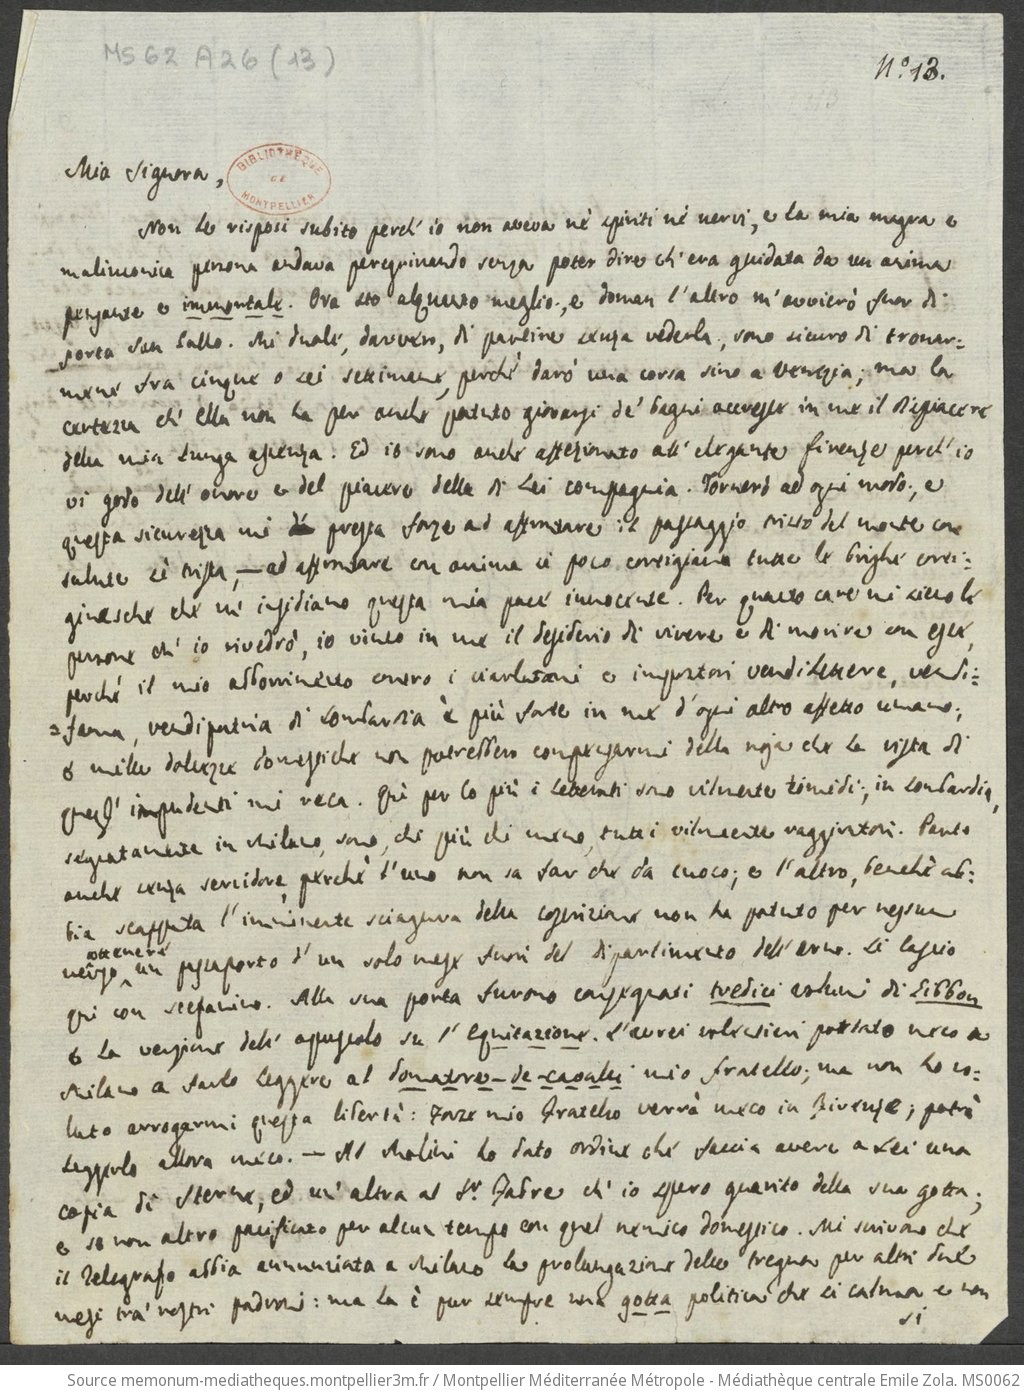 MS 62 A 26 (13)
N.° 13.
Mia Signora,
BIBLIOTHÈQUE DE MONTPELLIER
Non Le risposi subito perch' io non aveva nè spiriti nè nervi, e la mia magra e
malinconica persona andava peregrinando senza poter dire ch' era guidata da un anima
pensante e immortale. Ora sto alquanto meglio, e doman l'altro m'avvierò fuor di
porta San Gallo. Mi duole, davvero, di partire senza vederla, sono sicuro di tornar=
mene fra cinque o sei settimane, perchè darò una corsa sino a Venezia; ma la
certezza ch' Ella non ha per anche potuto giovarsi de' bagni accresce in me il dispiacere
della mia lunga assenza. Ed io sono anche affezionato all' elegante Firenze perch' io
vi godo dell' onore e del piacere della di Lei compagnia. Tornerò ad ogni modo, e
questa sicurezza mi presta forze ad affrontare il passaggio tristo del monte con
salute sì trista, — ad affrontare con anima sì poco cortigiana tutte le brighe corti=
gianesche che m' insidiano questa mia pace innocente. Per quanto care mi sieno le
persone ch' io rivedrò, io vinco in me il desiderio di vivere e di morire con esse,
perchè il mio abborrimento contro i ciarlatani e impostori vendilettere, vendi=
=fama, vendipatria di Lombardia è più forte in me d'ogni altro affetto umano;
e mille dolcezze domestiche non potrebbero compensarmi della noja che la vista di
quegl' impudenti mi reca. Quì per lo più i letterati sono vilmente timidi; in Lombardia,
segnatamente in Milano, sono, chi più chi meno, tutti vilmente raggiratori. Parto
anche senza servidore, perchè l'uno non sa far che da cuoco; e l'altro, benchè ab=
bia scappata l'imminente sciagura della coscrizione non ha potuto per nessun
verso ottenere un passaporto d' un solo mese fuori del dipartimento dell' Arno. Li lascio
qui con Stefanino. Alla sua porta furono consegnati tredici volumi di Gibbon
e la versione dell' opuscolo su l' Equitazione. L'avrei volentieri portato meco a
Milano a farlo leggere al domatore-de-cavalli mio fratello; ma non ho vo=
luto arrogarmi questa libertà: forse mio Fratello verrà meco in Firenze; potrà
leggerlo allora meco. — Al Molini ho dato ordine che faccia avere a Lei una
copia di Sterne, ed un' altra al Sr. Padre ch' io spero guarito della sua gotta;
e se non altro pacificato per alcun tempo con quel nemico domestico. Mi scrivono che
il Telegrafo abbia annunziata a Milano la prolungazione della tregua per altri due
mesi tra' nostri padroni: ma la è pur sempre una gotta politica che si calma e non
si
Source memonum-mediatheques.montpellier3m.fr / Montpellier Méditerranée Métropole - Médiathèque centrale Emile Zola. MS0062